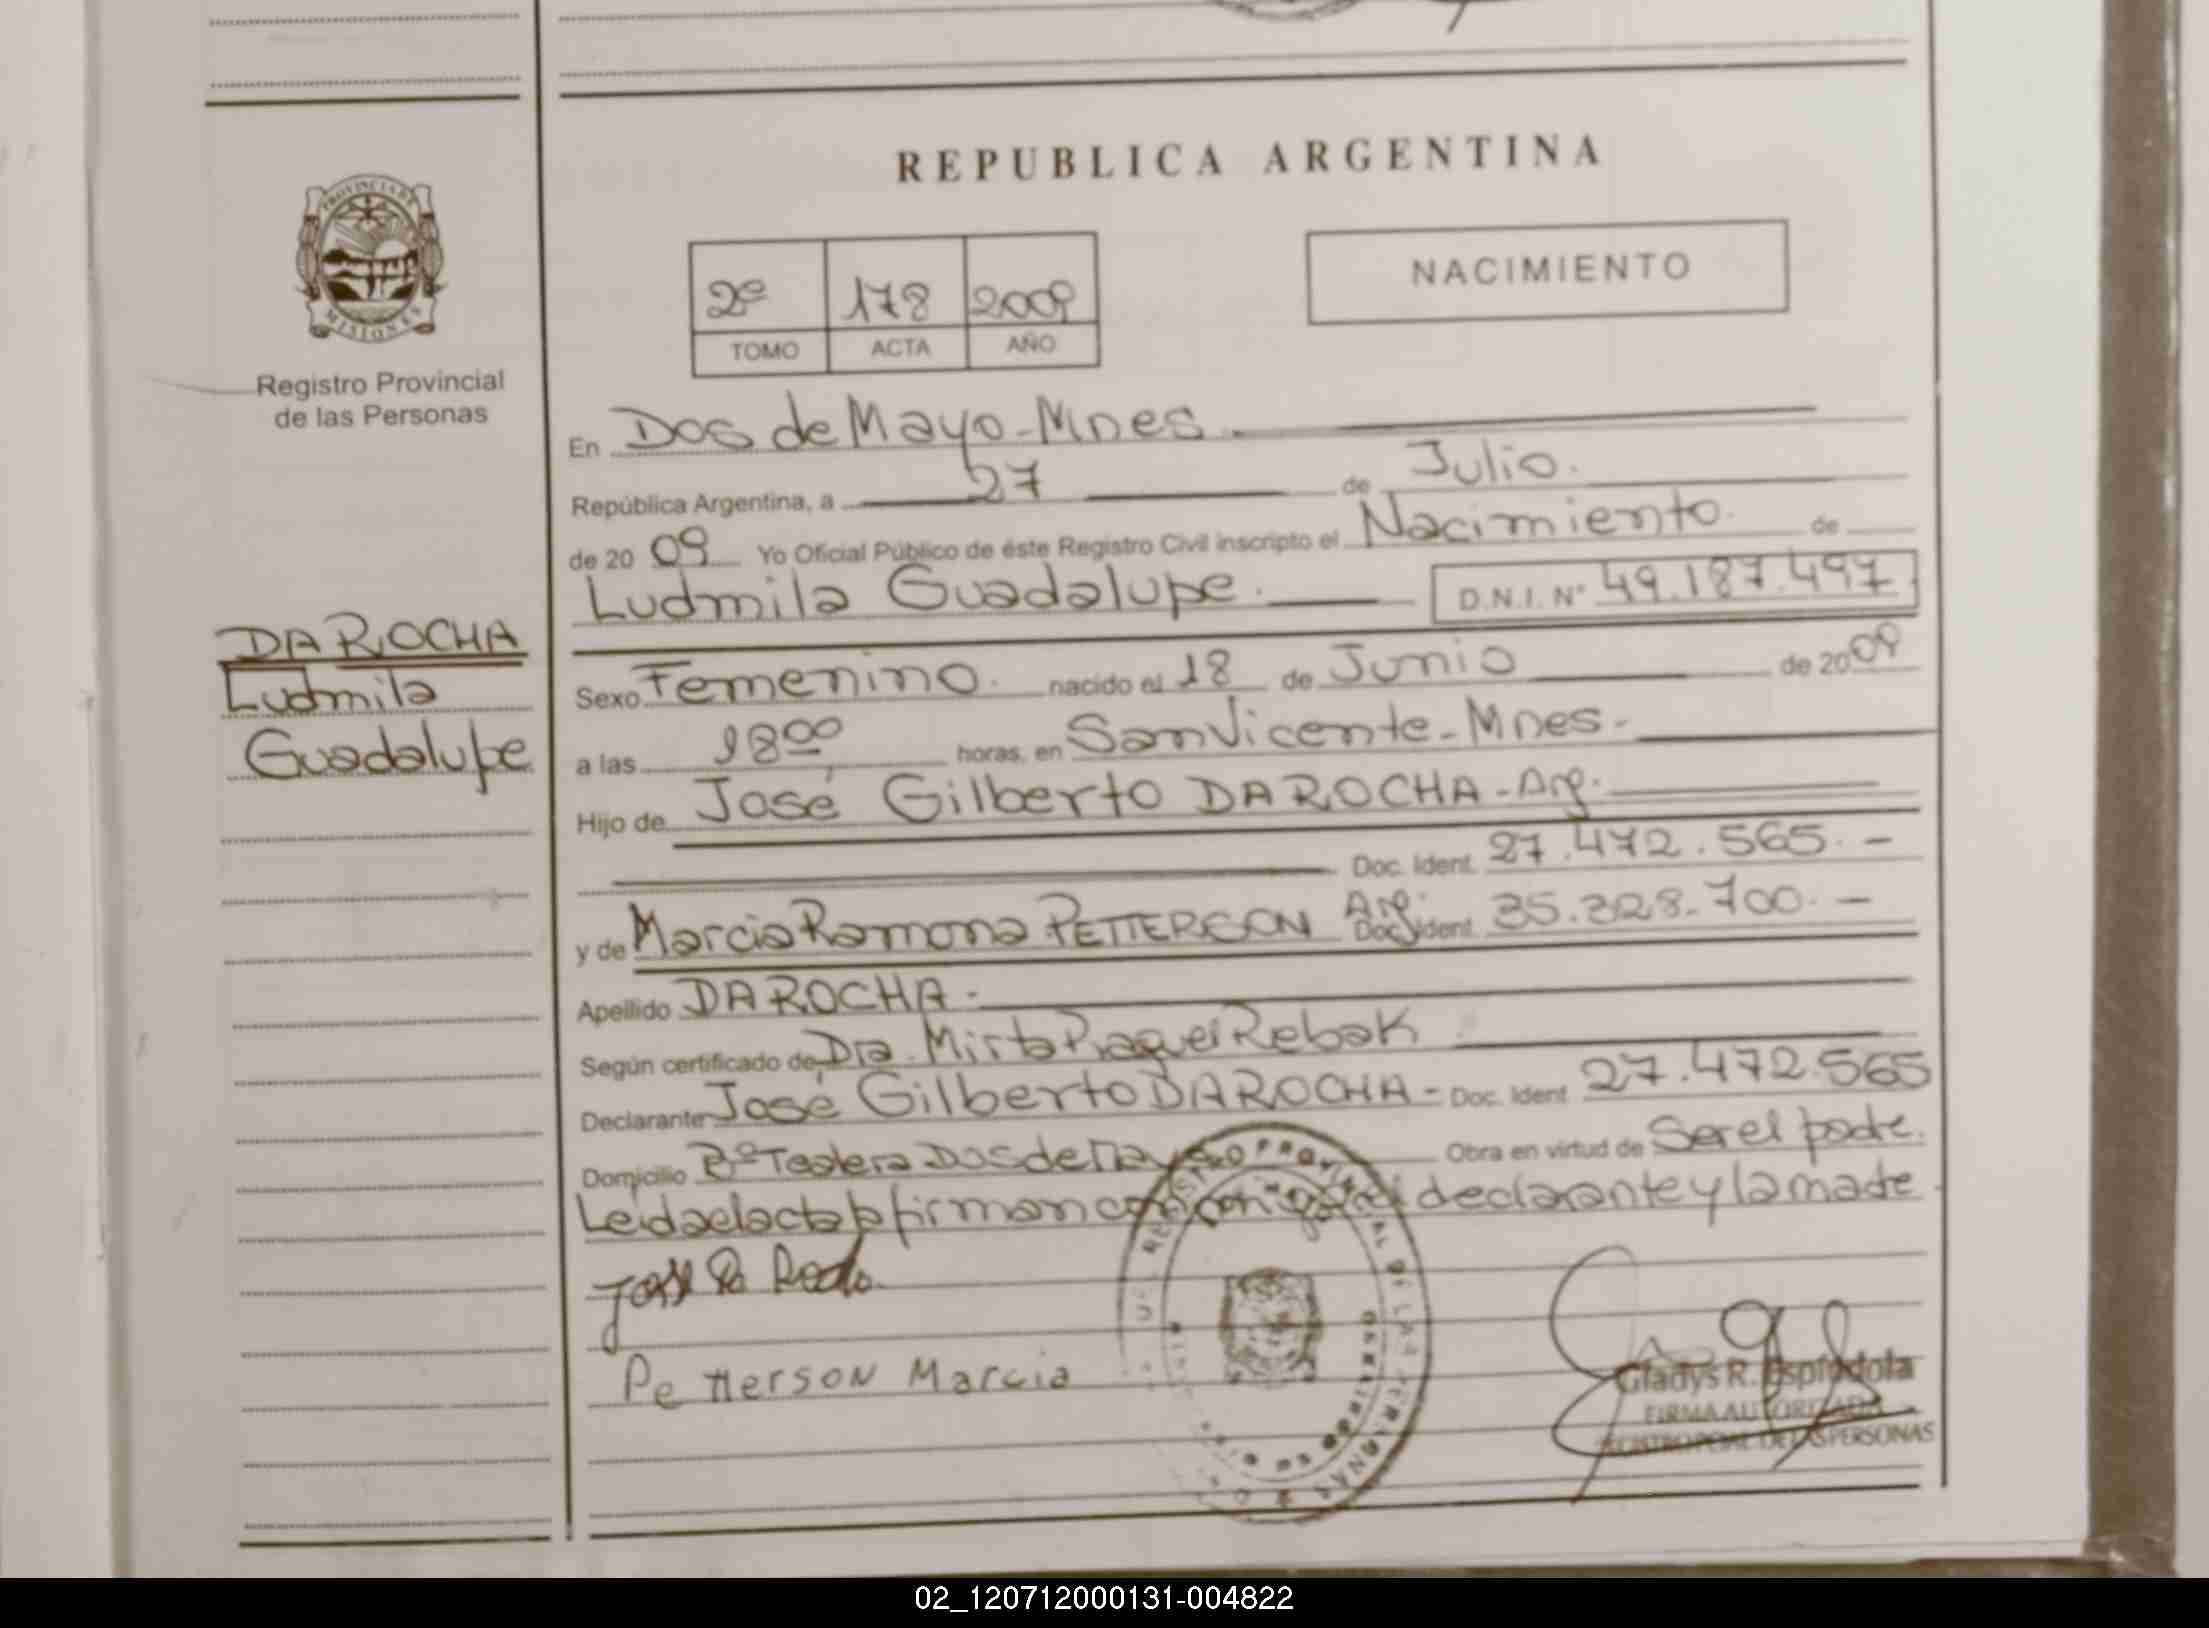 REPUBLICA ARGENTINA
PROVINCIA DE
MISIONES
Registro Provincial
de las Personas
2º 178 2009
TOMO ACTA AÑO
NACIMIENTO
En Dos de Mayo - Mnes.
República Argentina, a 27 de Julio.
de 2009 Yo Oficial Público de éste Registro Civil inscripto el Nacimiento. de
Ludmila Guadalupe. D.N.I. Nº 49.187.497
DA ROCHA
Ludmila
Guadalupe
Sexo Femenino. nacido el 18 de Junio de 2009
a las 18 00 horas, en San Vicente - Mnes.-
Hijo de José Gilberto DA ROCHA - Arg.
Doc. Ident. 27.472.565.-
y de Marcia Ramona PETTERSON Arg. Doc. Ident. 35.328.700.-
Apellido DA ROCHA.-
Según certificado de Dra. Mirta Raquel Rebak
Declarante José Gilberto DA ROCHA - Doc. Ident. 27.472.565
Domicilio Bº Tealera Dos de Mayo Obra en virtud de Ser el padre.
Leida el acta firman conmigo el declarante y la madre.
José Da
Petterson Marcia
Gladys R. Espindola
FIRMA AUTORIZADA
REGISTRO PCIAL. DE LAS PERSONAS
02_120712000131-004822